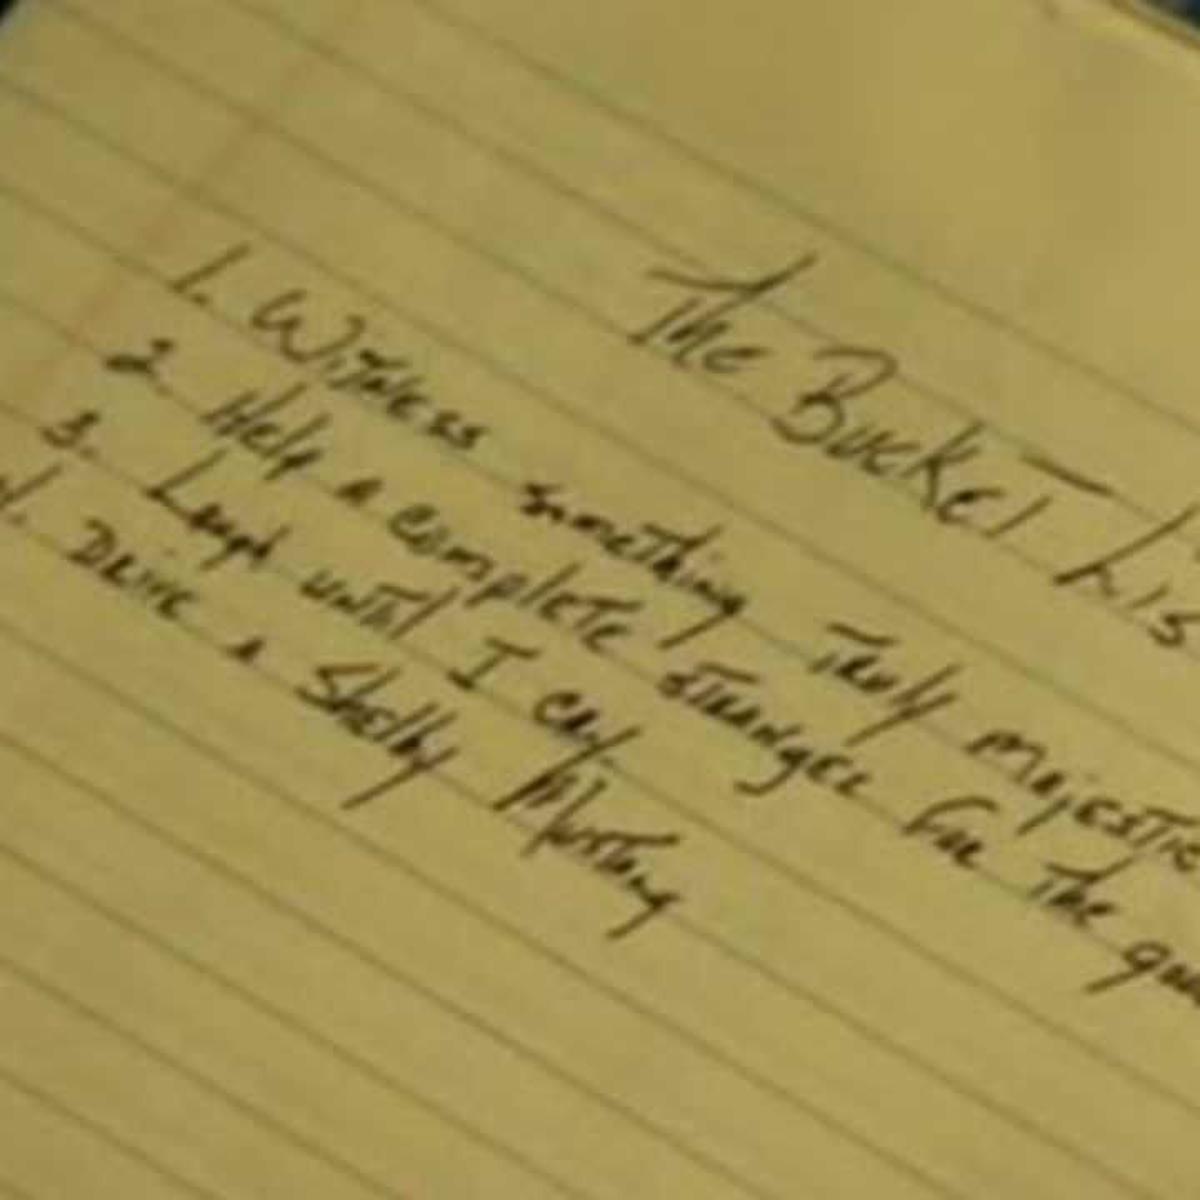 The Bucket Lis
1. Witness something Truly majestic
2. Help a complete stranger for the
3. Laugh until I cry
4. Drive a Shelby Mustang